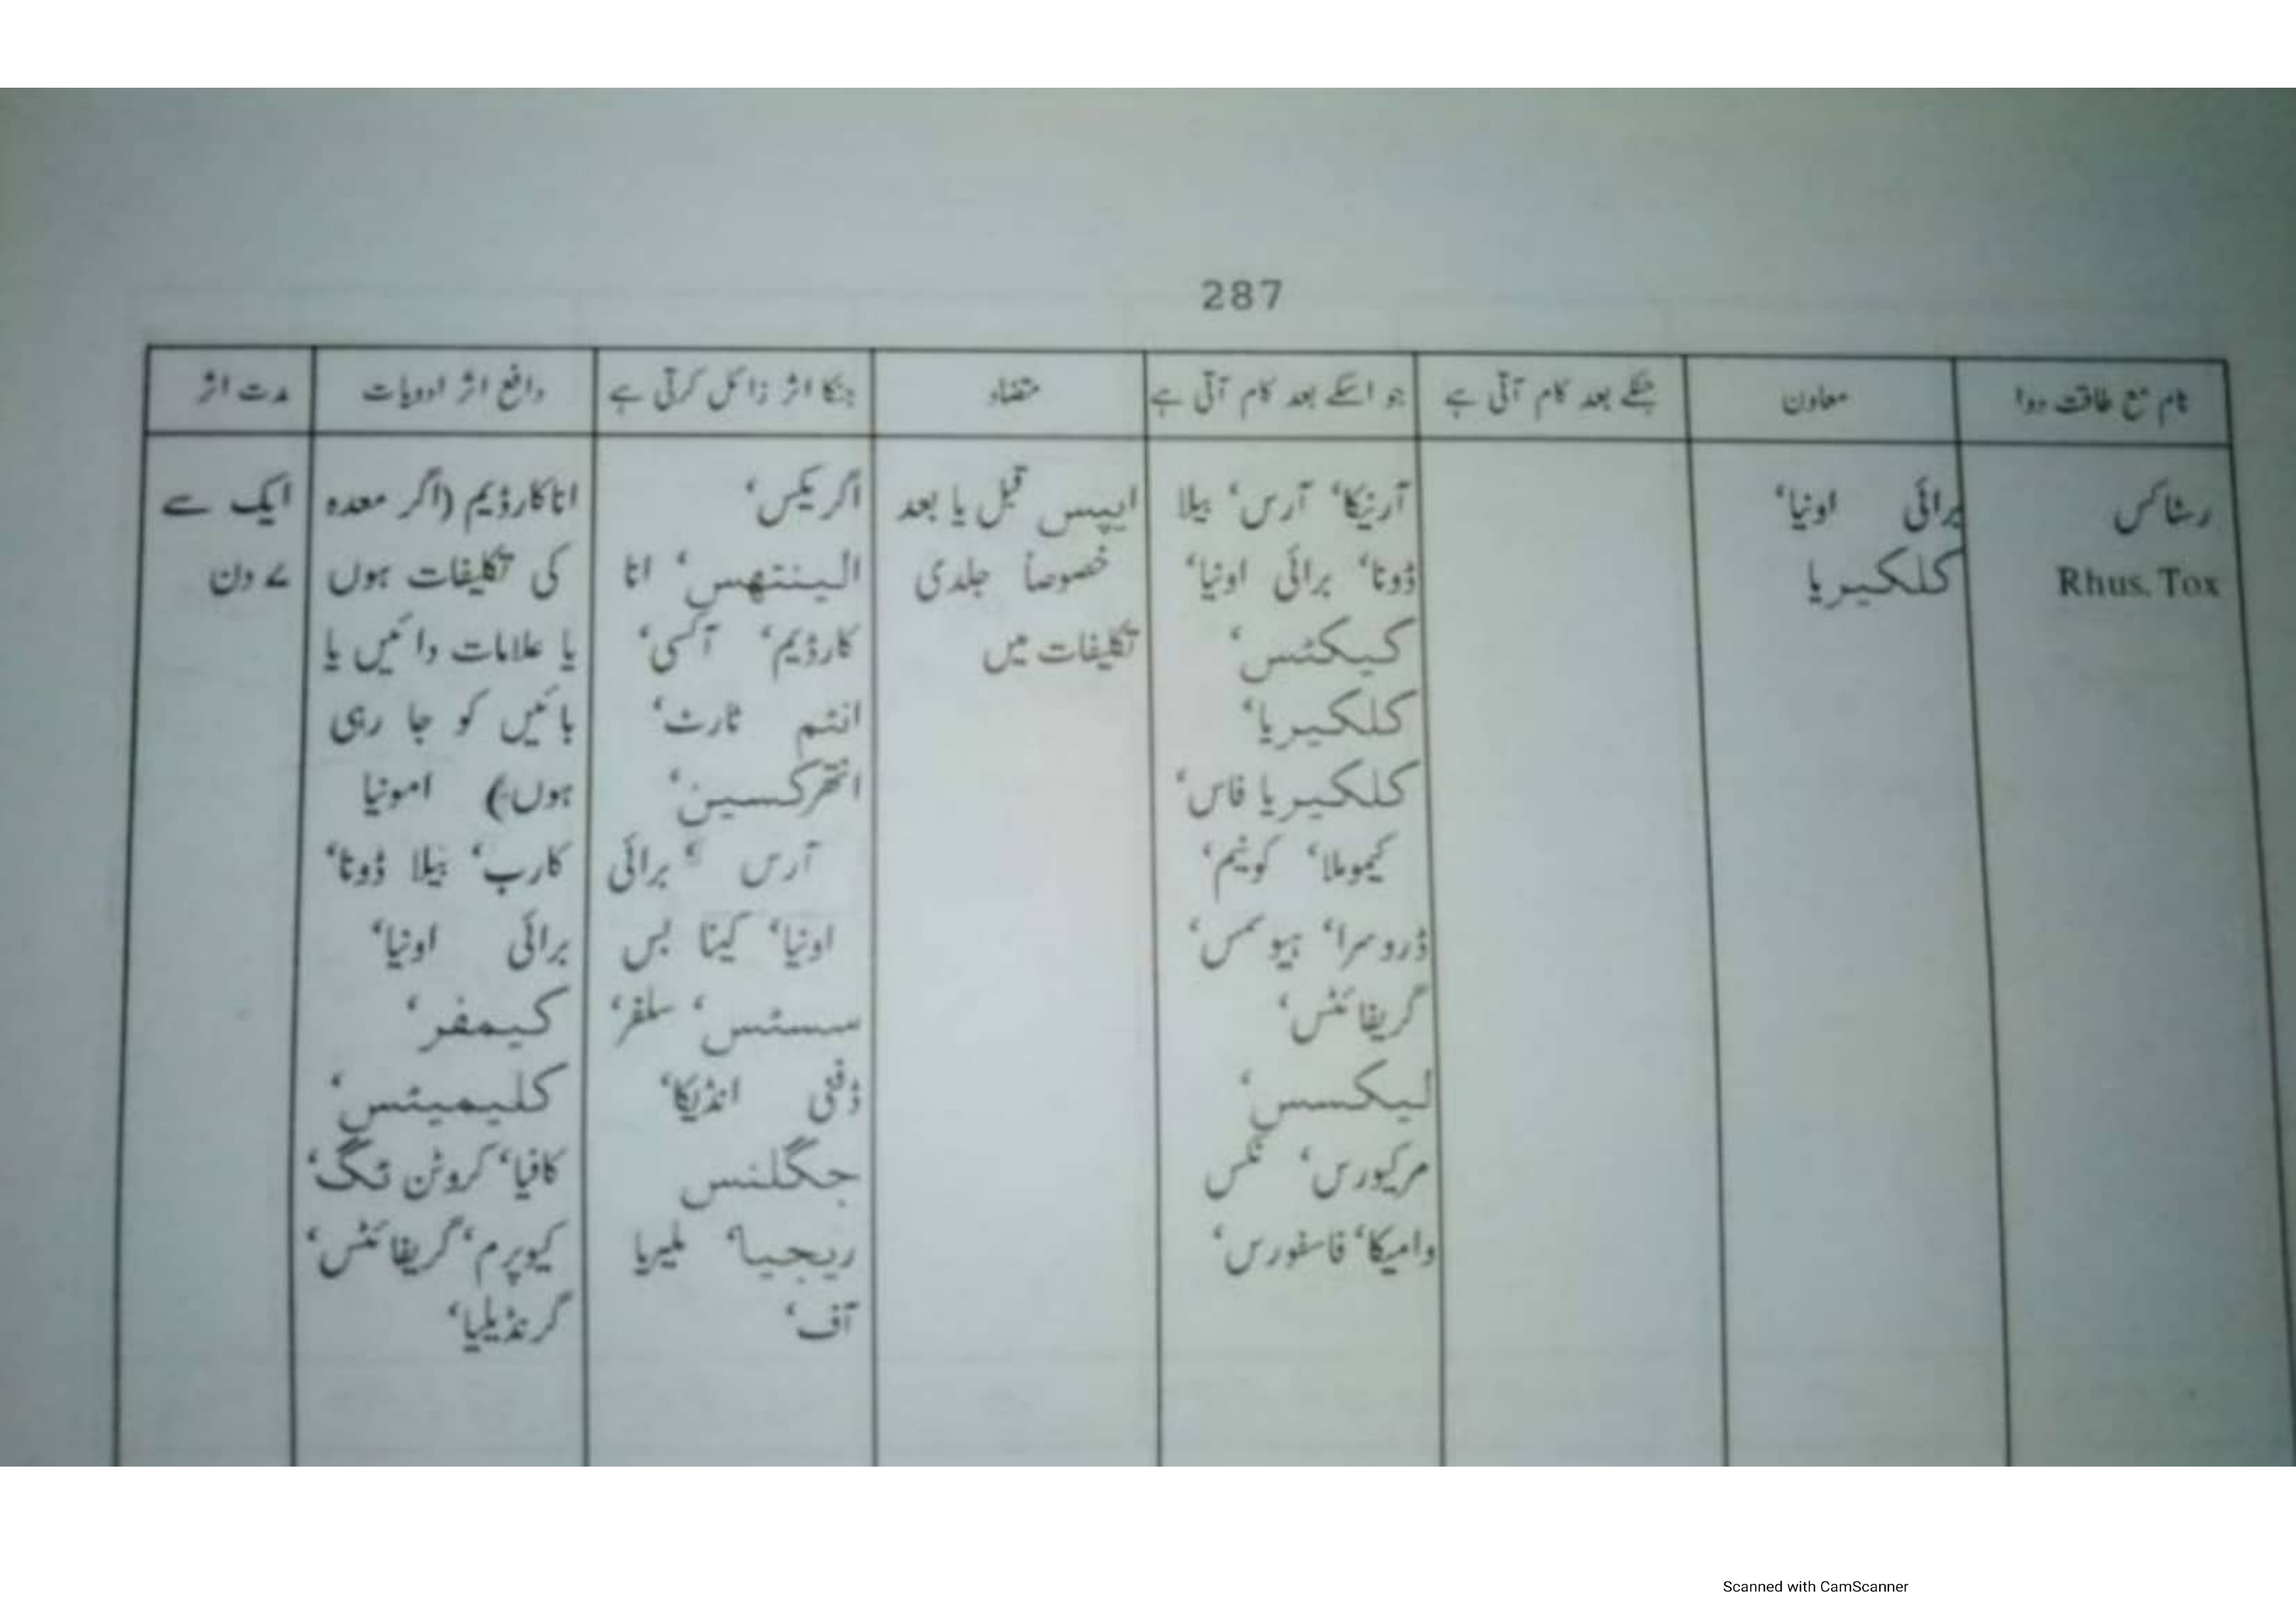 287
نام مع طاقت دوا
معاون
جنکے بعد کام آتی ہے
جو اسکے بعد کام آتی ہے
متضاد
جنکا اثر زائل کرتی ہے
دافع اثر ادویات
مدت اثر
رسٹاکس
Rhus. Tox
برائی اونیا‘
کلکیریا
آرنیکا‘ آرس‘ بیلا
ڈونا‘ برائی اونیا‘
کیکٹس‘
کلکیریا‘
کلکیریا فاس‘
کیموملا‘ کونیم‘
ڈروسرا‘ ہیومس‘
گریفائٹس‘
لیکسس‘
مرکیورس‘ نکس
وامیکا‘ فاسفورس‘
ایپس قبل یا بعد
خصوصاً جلدی
تکلیفات میں
اگریکس‘
الینتھس‘ انا
کارڈیم‘ آکسی‘
انٹم ٹارٹ‘
انتھرکسین‘
آرس ‘ برائی
اونیا‘ کینا بس
سسٹس‘ سلفر‘
ڈفنی انڈیکا‘
جگلنس
ریجیا‘ ملیریا
آف‘
اناکارڈیم (اگر معدہ
کی تکلیفات ہوں
یا علامات دائیں یا
بائیں کو جا رہی
ہوں) امونیا
کارب‘ بیلا ڈونا‘
برائی اونیا‘
کیمفر‘
کلیمیٹس‘
کافیا‘ کروٹن ٹگ‘
کیوپرم‘ گریفائٹس‘
گرنڈیلیا‘
ایک سے
۷ دن
Scanned with CamScanner